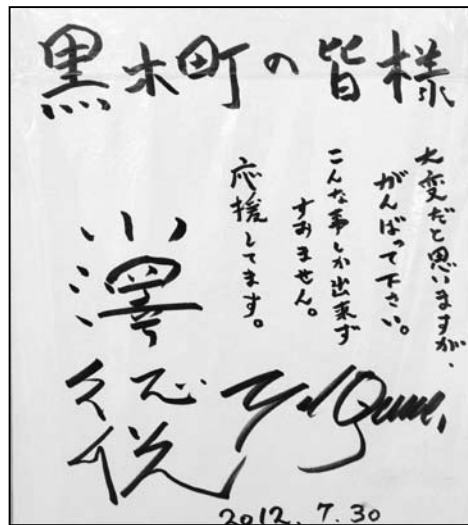 黒木町の皆様
大変だと思いますが、
がんばって下さい。
こんな事しか出来ず
すみません。
応援してます。
小澤征悦
2012. 7. 30